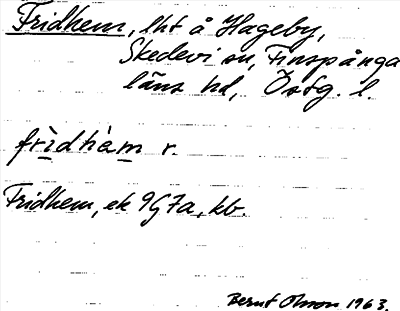 Fridhem, lht å Hageby,
Skedevi sn, Finspånga
läns hd, Östg. l.
frìdhèm r.
Fridhem, ek 9G7a, kb.
Bernt Olsson 1963.